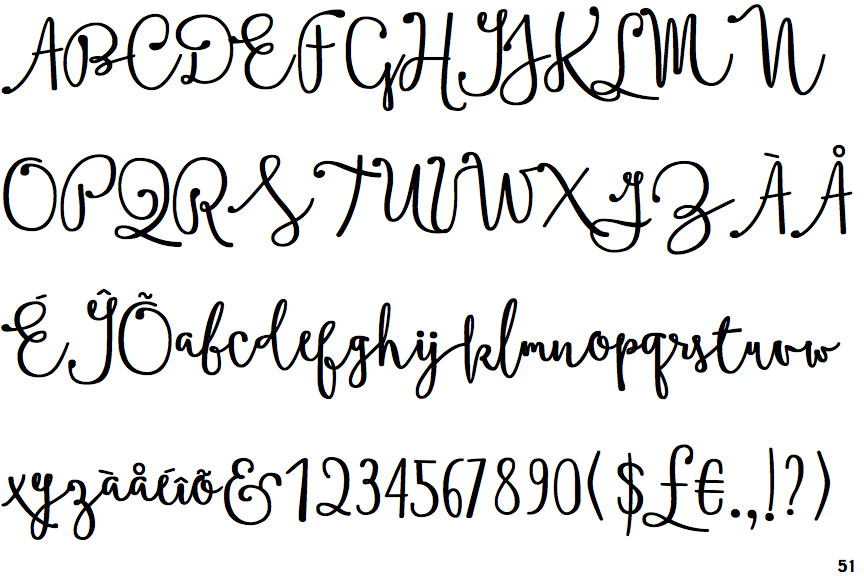 ABCDEFGHIJKLMN
OPQRSTUVWXYZÀÅ
ÉĴÕabcdefghijklmnopqrstuvw
xyzàåéîõ&1234567890($£€.,!?)
51